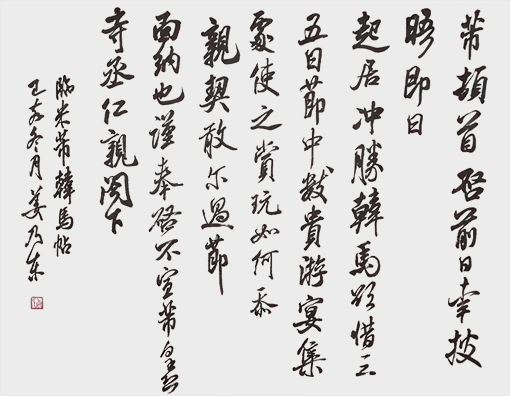 芾頓首啓前日幸披
晤即日
起居冲勝韓馬欲借三
五日節中数貴游宴集
處使之賞玩如何忝
親契敢尔過節
面納也謹奉啓不宣芾皇恐
寺丞仁親閤下
臨米芾韓馬帖
己亥冬月姜乃東